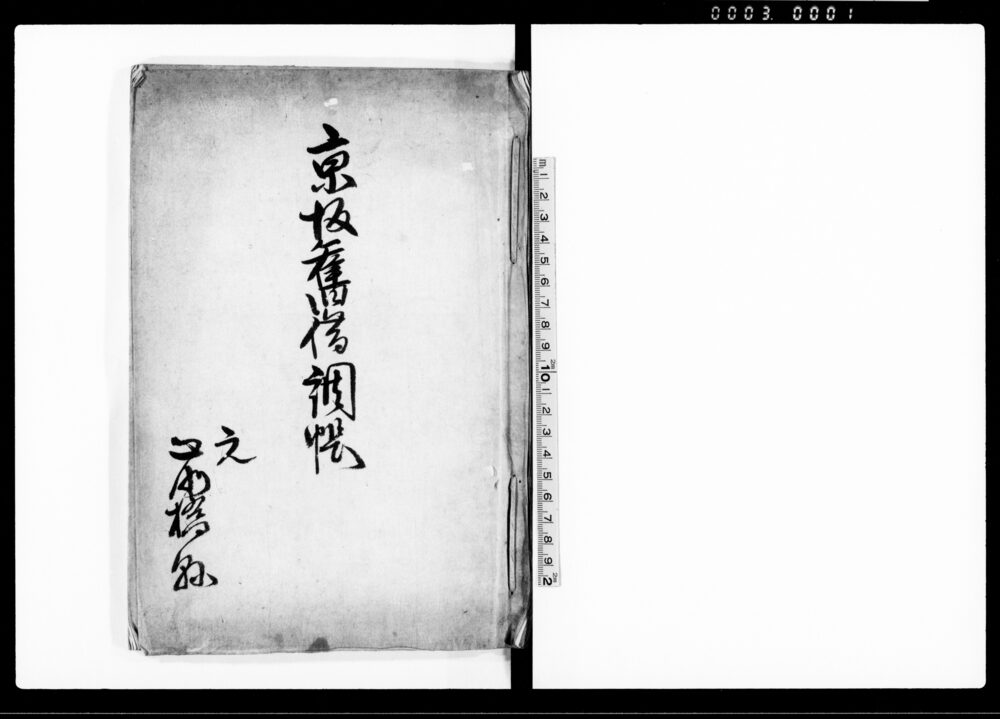 0003. 0001
京坂舊借調帳
元
前橋縣
m 1 2 3 4 5 6 7 8 9 10 1 2 3 4 5 6 7 8 9 2